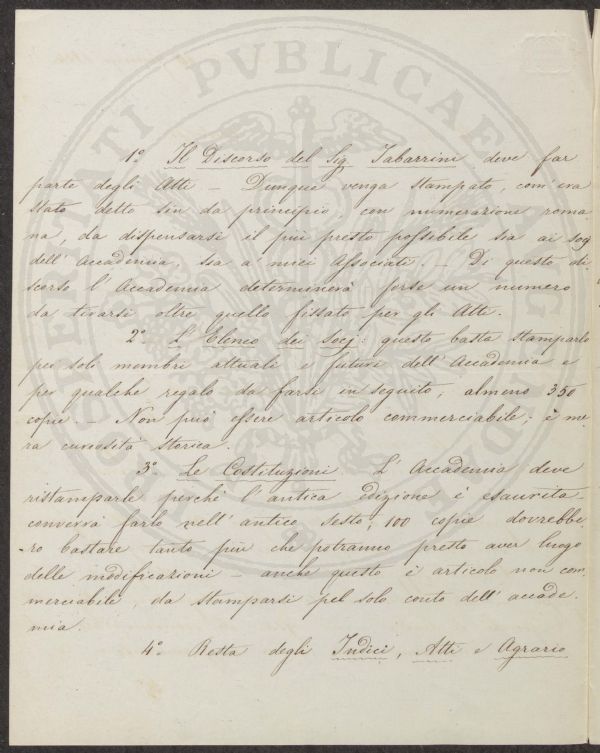 PROSPERITATI PVBLICAE AVGENDAE
1º Il Discorso del Sig Tabarrini deve far
parte degli Atti — Dunque venga stampato, com'era
stato detto sin da principio, con numerazione roma
na, da dispensarsi il più presto possibile sia ai soci
dell'Accademia, sia a' miei Associati. — Di questo di
scorso l'Accademia determinerà forse un numero
da tirarsi oltre quello fissato per gli Atti.
2º L'Elenco dei Socj: questo basta stamparlo
pei soli membri attuali e futuri dell'Accademia e
per qualche regalo da farsi in seguito; almeno 350
copie. — Non può essere articolo commerciabile; è me
ra curiosità storica.
3º Le Costituzioni. L'Accademia deve
ristamparle perchè l'antica edizione è esaurita
converrà farlo nell'antico sesto; 100 copie dovrebbe
ro bastare tanto più che potranno presto aver luogo
delle modificazioni — anche questo è articolo non com
merciabile, da stamparsi pel solo conto dell'accade.
mia.
4º Resta degli Indici, Atti e Agrario